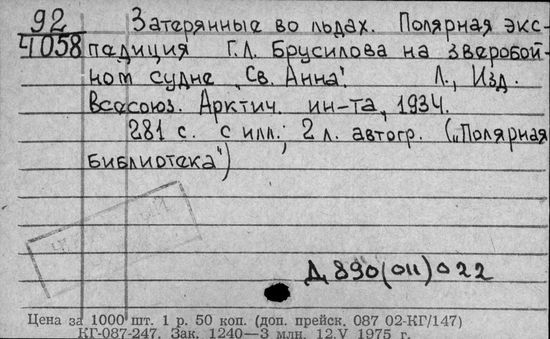 92
4058
Затерянные во льдах. Полярная экс-
педиция Г.Л. Брусилова на зверобой-
ном судне „Св. Анна". Л., Изд.
Всесоюз. Арктич. ин-та, 1934.
281 с. с илл.; 2 л. автогр. („Полярная
библиотека")
Д 890(011)022
Цена за 1000 шт. 1 р. 50 коп. (доп. прейск. 087 02-КГ/147)
КГ-087-247. Зак. 1240—3 млн. 12.V 1975 г.